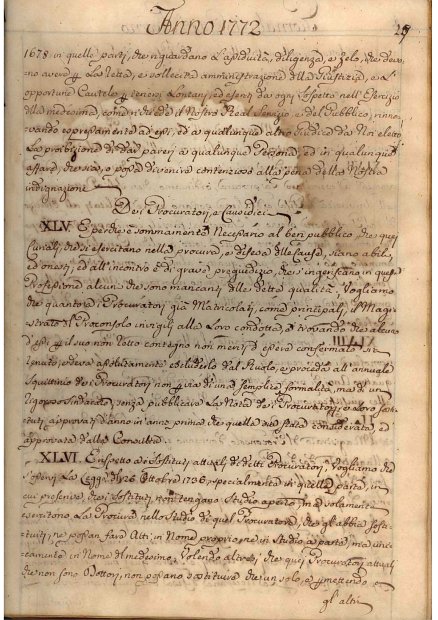 Anno 1772
29
1678 in quelle parti, che riguardano L'assiduità, diligenza, e zelo, che devo-
no avere p La retta, e sollecita amministrazione della Giustizia, e L'
opportune Cautele p tenersi Lontani, ed esenti da ogni sospetto nell'Esercizio
della medesima, come richiede il Nostro Real Servizio, e del Pubblico, rinno-
vando espressamente ad essi, ed a qualunque altro Giudice da Noi eletto
La proibizione di dar pareri a qualunque Persona, ed in qualunque
affare, che sia, o possa divenire contenzioso alla pena della Nostra
indignazione
Dei Procuratori, e Causidici
XLV. E perche è sommamente Necessario al ben pubblico, che quei
Curiali, che si esercitano nella procura, e difesa delle Cause, siano abili,
ed onesti, ed all'incontro è di grave pregiudizio, che s'ingeriscano in questa
Professione alcuni che sono mancanti delle dette qualità, Vogliamo
che quanto ai Procuratori già Matricolati, come principali, il Magi-
strato del Proconsolo invigili alla Loro condotta, e trovando che alcuno
d'essi p il suo non retto contegno non meriti d'essere confermato, sia
tenuto, e deva assolutamente escluderlo dal Ruolo, e proceda all'annuale
Squittinio dei Procuratori non p via di una semplice formalità, ma di un
rigoroso Sindacato, senza pubblicare La Nota dei Procuratori, e Loro sosti-
tuti, approvati d'anno in anno, prima che quella sia stata considerata, ed
approvata dalla Consulta.
XLVI. E rispetto ai Sostituti attuali di detti Procuratori, Vogliamo che
s'osservi La Legge de' 26 Ottobre 1736, e specialmente in quella parte, in
cui prescrive, che i Sostituti non tengano Studio aperto, ma solamente
esercitino La Procura nello Studio di quel Procuratore, che gli abbia sosti-
tuiti, ne possan fare Atti in Nome proprio, ne in Studio a parte, ma unic-
camente in Nome del medesimo, Volendo altresì che quei Procuratori attuali
che non sono Dottori, non possano sostituire che un solo, e p mettendo a
gl'altri